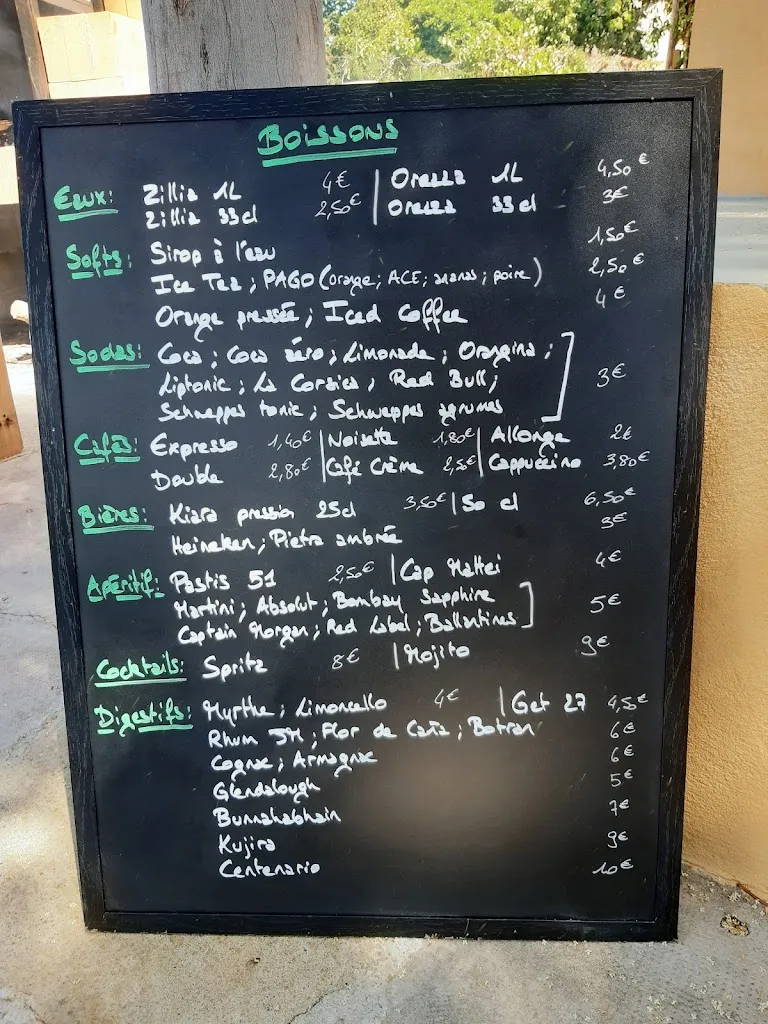 Boissons
Eaux: Zillia 1L 4€ | Orezza 1L 4,50€
Zillia 33cl 2,50€ | Orezza 33cl 3€
Softs: Sirop à l'eau 1,50€
Ice Tea; PAGO (orange; ACE; ananas; poire) 2,50€
Orange pressée; Iced Coffee 4€
Sodas: Coca; Coca zéro; Limonade; Orangina;
Liptonic; La Corsica; Red Bull; 3€
Schweppes tonic; Schweppes agrumes
Cafés: Expresso 1,40€ | Noisette 1,80€ | Allongé 2€
Double 2,80€ | Café Crème 2,5€ | Cappuccino 3,80€
Bières: Kiara pression 25cl 3,50€ | 50 cl 6,50€
Heineken; Pietra ambrée 3€
Apéritif: Pastis 51 2,50€ | Cap Mattei 4€
Martini; Absolut; Bombay Sapphire
Captain Morgan; Red Label; Ballantines 5€
Cocktails: Spritz 8€ | Mojito 9€
Digestifs: Myrthe; Limoncello 4€ | Get 27 4,5€
Rhum JM; Flor de Caña; Botran 6€
Cognac; Armagnac 6€
Glendalough 5€
Bunnahabhain 7€
Kujira 9€
Centenario 10€